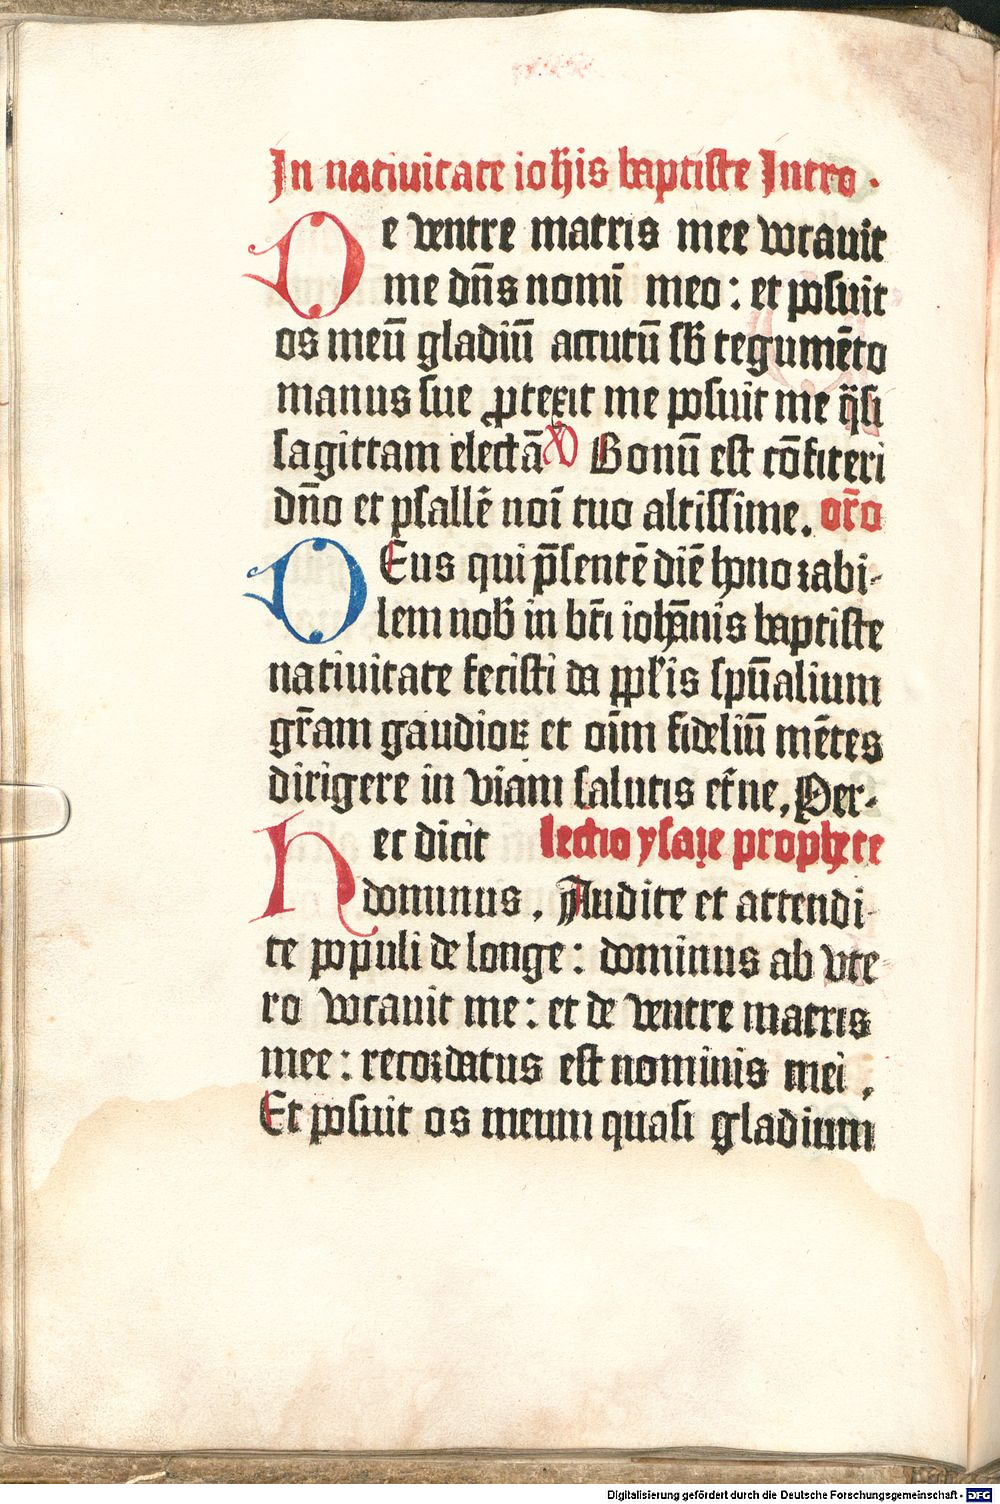 In natiuitate ioh̄is baptiste Intro.
De ventre matris mee vocauit
me dn̄s nomī meo: et posuit
os meū gladiū accutū sb̄ tegumēto
manus sue ꝓtexit me posuit me q̄si
sagittam electā V Bonū est cōfiteri
dn̄o et psallē noī tuo altissime. or̄o
DEus qui p̄sentē diē honorabi-
lem nob̄ in bt̄i ioh̄ānis baptiste
natiuitate fecisti da ppl̄is spūalium
gr̄am gaudioꝝ et oīm fideliū mētes
dirigere in viam salutis et̄ne. Per-
Hec dicit lectio ysaie prophete
dominus. Audite et attendi-
te populi de longe: dominus ab vte-
ro vocauit me: et de ventre matris
mee: recordatus est nominis mei.
Et posuit os meum quasi gladium
Digitalisierung gefördert durch die Deutsche Forschungsgemeinschaft - DFG